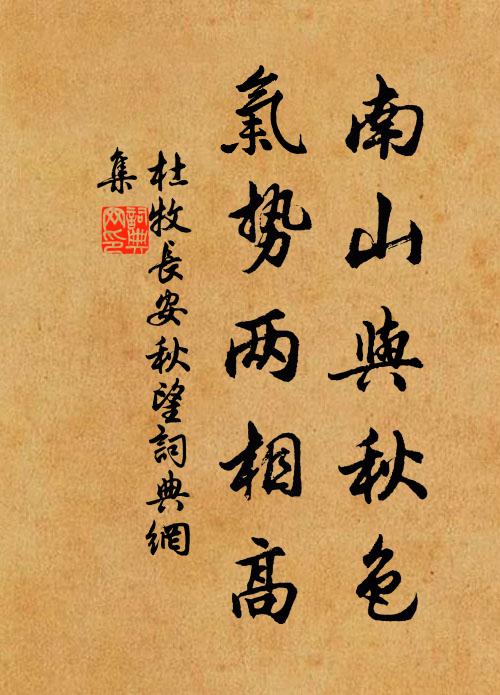 南山與秋色
氣势两相高
杜牧長安秋望詞典網
集
詞典
网印